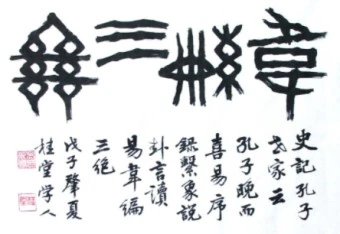 韋編三絕
史記孔子
世家云
孔子晚而
喜易序
繫象説
卦言讀
易韋編
三絶
戊子肇夏
桂堂学人